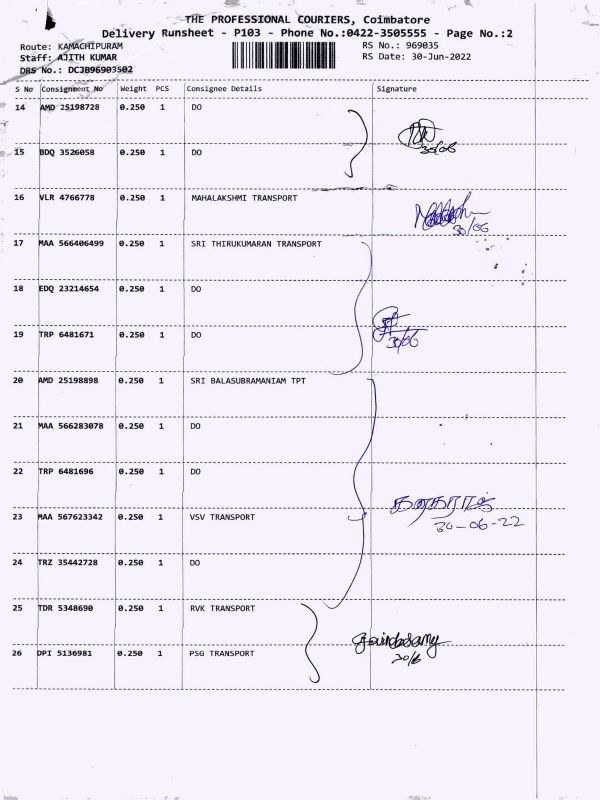 THE PROFESSIONAL COURIERS, Coimbatore
Delivery Runsheet - P103 - Phone No.:0422-3505555 - Page No.:2
Route: KAMACHIPURAM RS No.: 969035
Staff: AJITH KUMAR RS Date: 30-Jun-2022
DRS No.: DCJB96903502
S No Consignment No Weight PCS Consignee Details Signature
14 AMD 25198728 0.250 1 DO
30/06
15 BDQ 3526058 0.250 1 DO
16 VLR 4766778 0.250 1 MAHALAKSHMI TRANSPORT
30/06
17 MAA 566406499 0.250 1 SRI THIRUKUMARAN TRANSPORT
18 EDQ 23214654 0.250 1 DO
19 TRP 6481671 0.250 1 DO
30/06
20 AMD 25198898 0.250 1 SRI BALASUBRAMANIAM TPT
21 MAA 566283078 0.250 1 DO
22 TRP 6481696 0.250 1 DO
23 MAA 567623342 0.250 1 VSV TRANSPORT
30-06-22
24 TRZ 35442728 0.250 1 DO
25 TDR 5348690 0.250 1 RVK TRANSPORT
26 DPI 5136981 0.250 1 PSG TRANSPORT
30/6